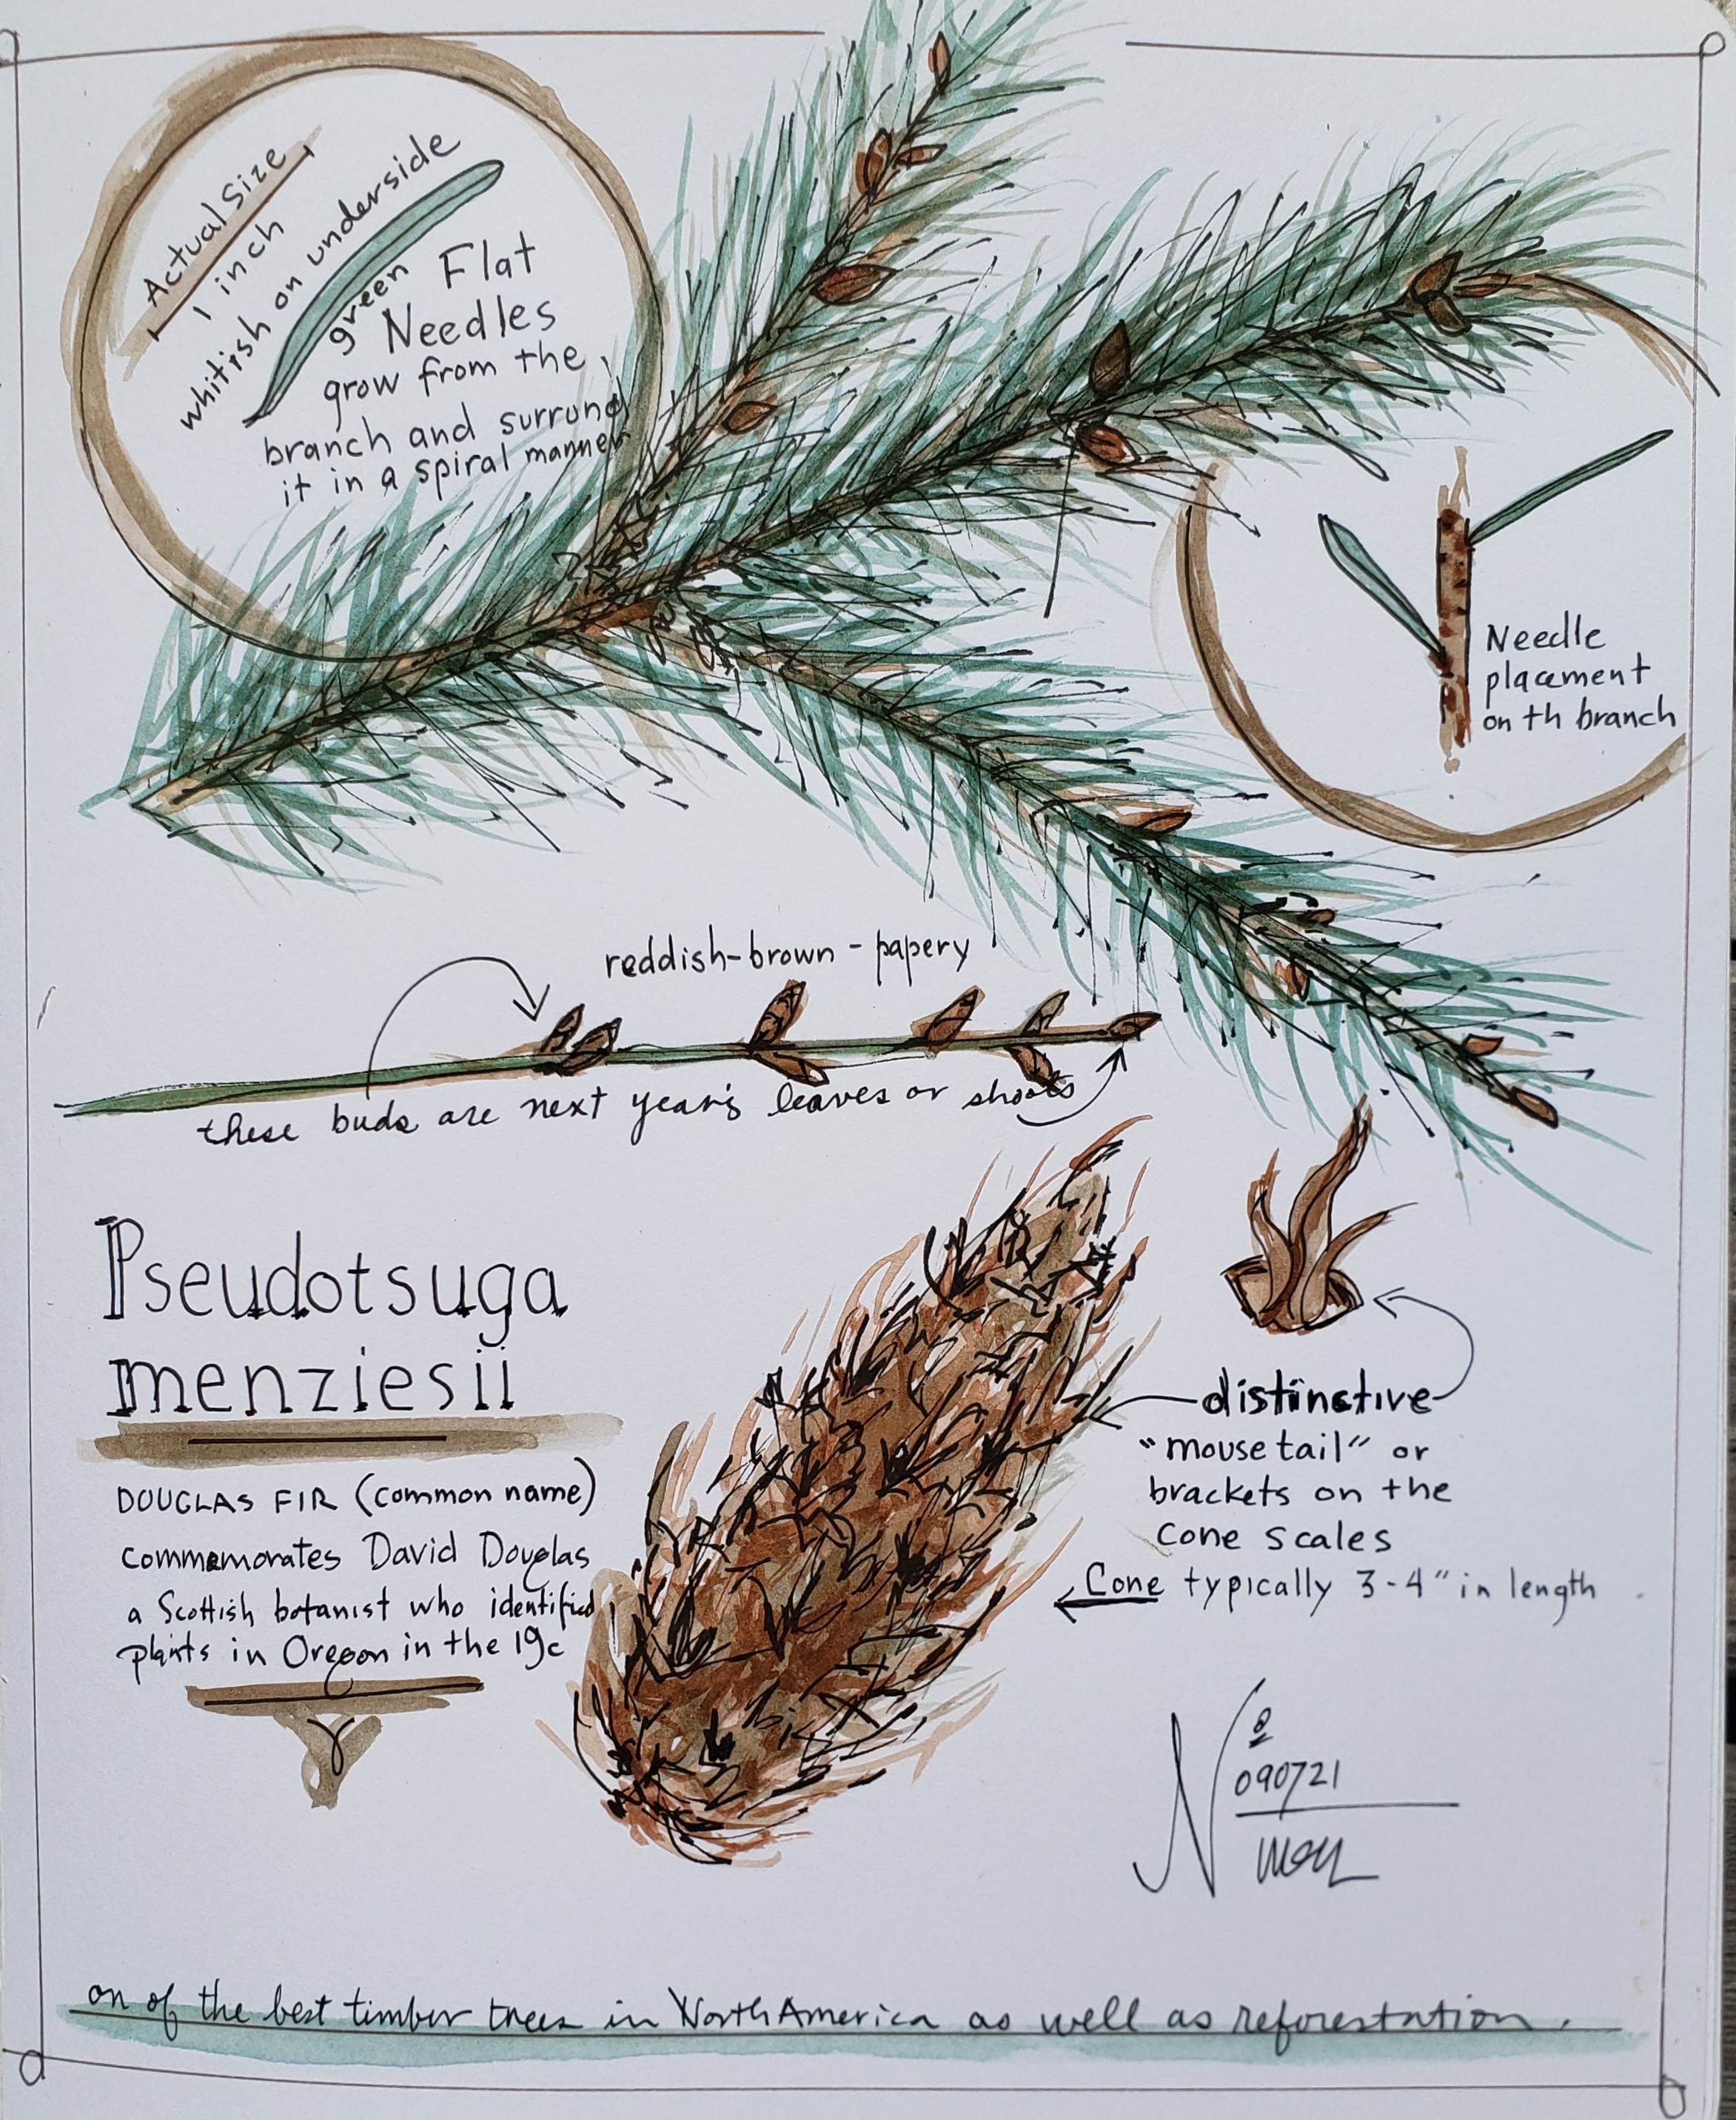 Actual Size
1 inch
whitish on underside
green
Flat
Needles
grow from the
branch and surrund
it in a spiral manner
Needle
placement
on th branch
reddish-brown-papery
these buds are next year's leaves or shoots
Pseudotsuga
menziesii
DOUGLAS FIR (common name)
commemorates David Douglas
a Scottish botanist who identified
plants in Oregon in the 19c
distinctive
"mouse tail" or
brackets on the
cone scales
Cone typically 3-4" in length
090721
on of the best timber trees in North America as well as reforestation.